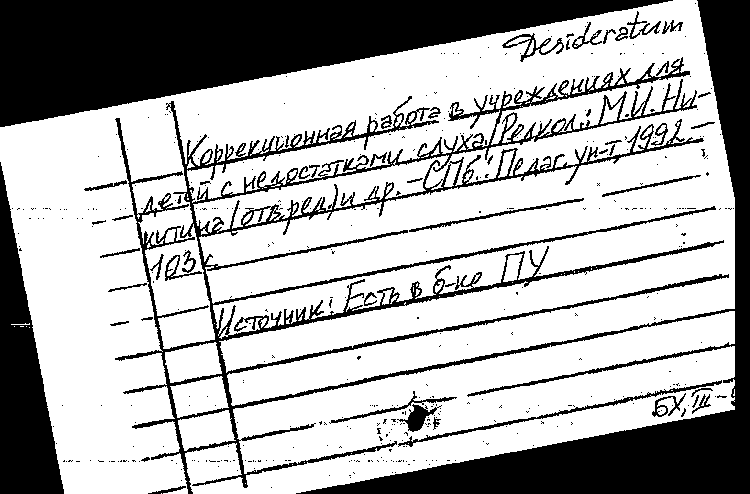 Desideratum
Коррекционная работа в учреждениях для
детей с недостатками слуха/Редкол.: М.И. Ни-
китина (отв.ред.) и др. – СПб.: Педаг. ун-т, 1992. –
103 с.
Источник: Есть в б-ке ПУ
БХ, III –